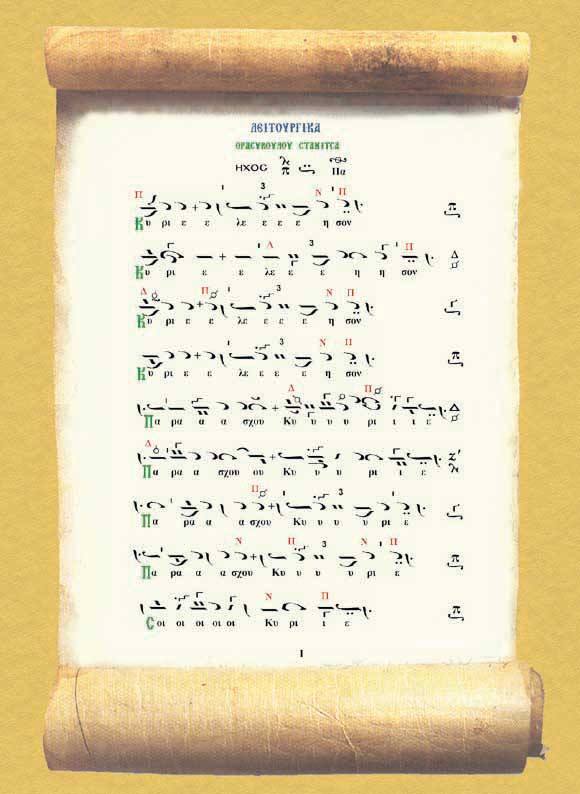 ΛΕΙΤΟΥΡΓΙΚΑ
ΘΡΑΣΥΒΟΥΛΟΥ ΣΤΑΝΙΤΣΑ
ΗΧΟΣ Πα
Κυ ρι ε ε λε ε ε ε η σον
Κυ ρι ε ε λε ε ε η η σον
Κυ ρι ε ε λε ε ε ε η σον
Κυ ρι ε ε λε ε ε ε η σον
Πα ρα α α σχου Κυ υ υ υ ρι ι ι ε
Πα ρα α σχου ου Κυ υ υ ρι ι ε
Πα ρα α α σχου Κυ υ υ υ ρι ε
Πα ρα α α σχου Κυ υ υ υ ρι ε
Σοι οι οι οι οι Κυ ρι ι ε
1